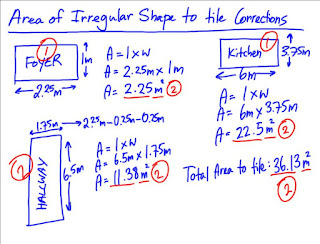 Area of Irregular Shape to tile Corrections
1
FOYER
1m
2.25m
A = l x w
A = 2.25m x 1m
A = 2.25m² 2
Kitchen 1
3.75m
6m
A = l x w
A = 6m x 3.75m
A = 22.5m² 2
1.75m → 2.25m-0.25m-0.25m
2
HALLWAY
6.5m
A = l x w
A = 6.5m x 1.75m
A = 11.38m² 2
Total Area to tile: 36.13m²
2